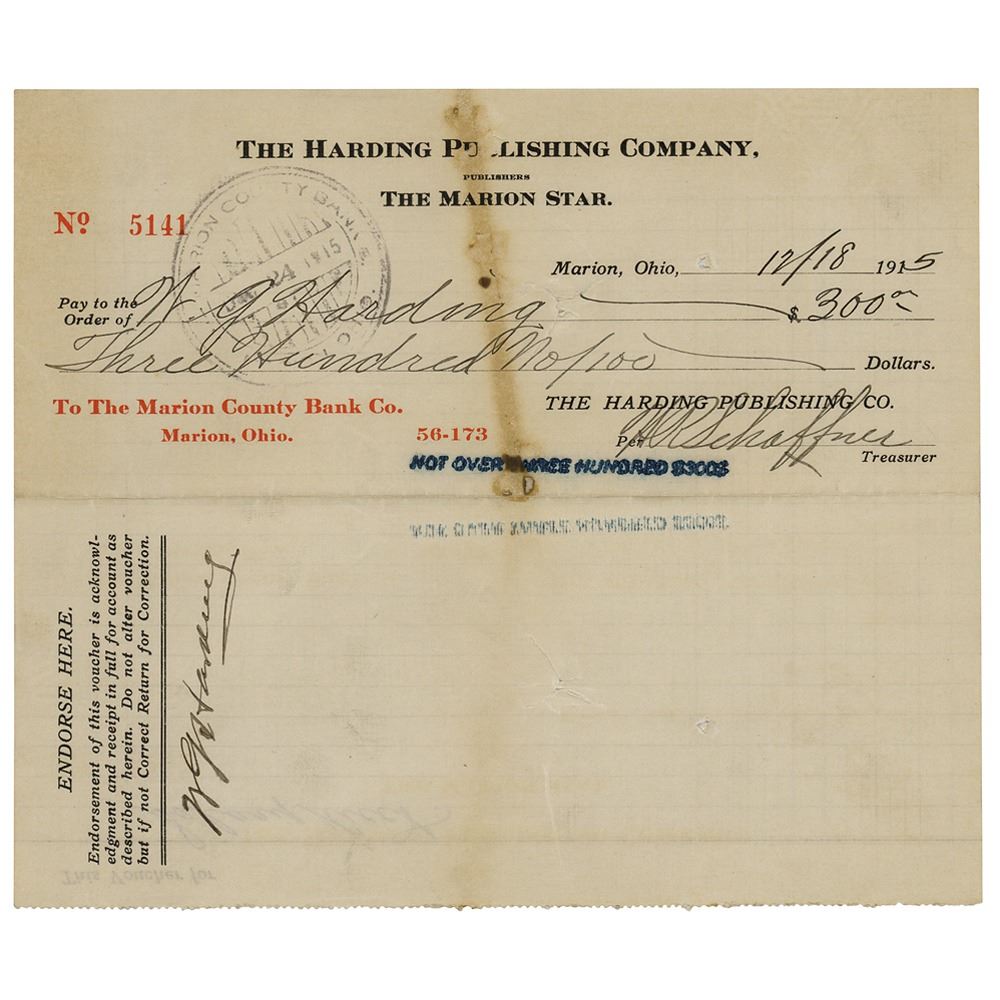 THE HARDING PU LISHING COMPANY,
PUBLISHERS
THE MARION STAR.
Nº 5141
MARION COUNTY BANK
24 1915
Marion, Ohio, 12/18 1915
Pay to the Order of W. G Harding $ 300 00
Three Hundred No/100 Dollars.
To The Marion County Bank Co.
Marion, Ohio.
56-173
THE HARDING PUBLISHING CO.
Per Schaffner
Treasurer
NOT OVER THREE HUNDRED $300$
ENDORSE HERE.
Endorsement of this voucher is acknowl-
edgment and receipt in full for account as
described herein. Do not alter voucher
but if not Correct Return for Correction.
W G Harding
This Voucher for